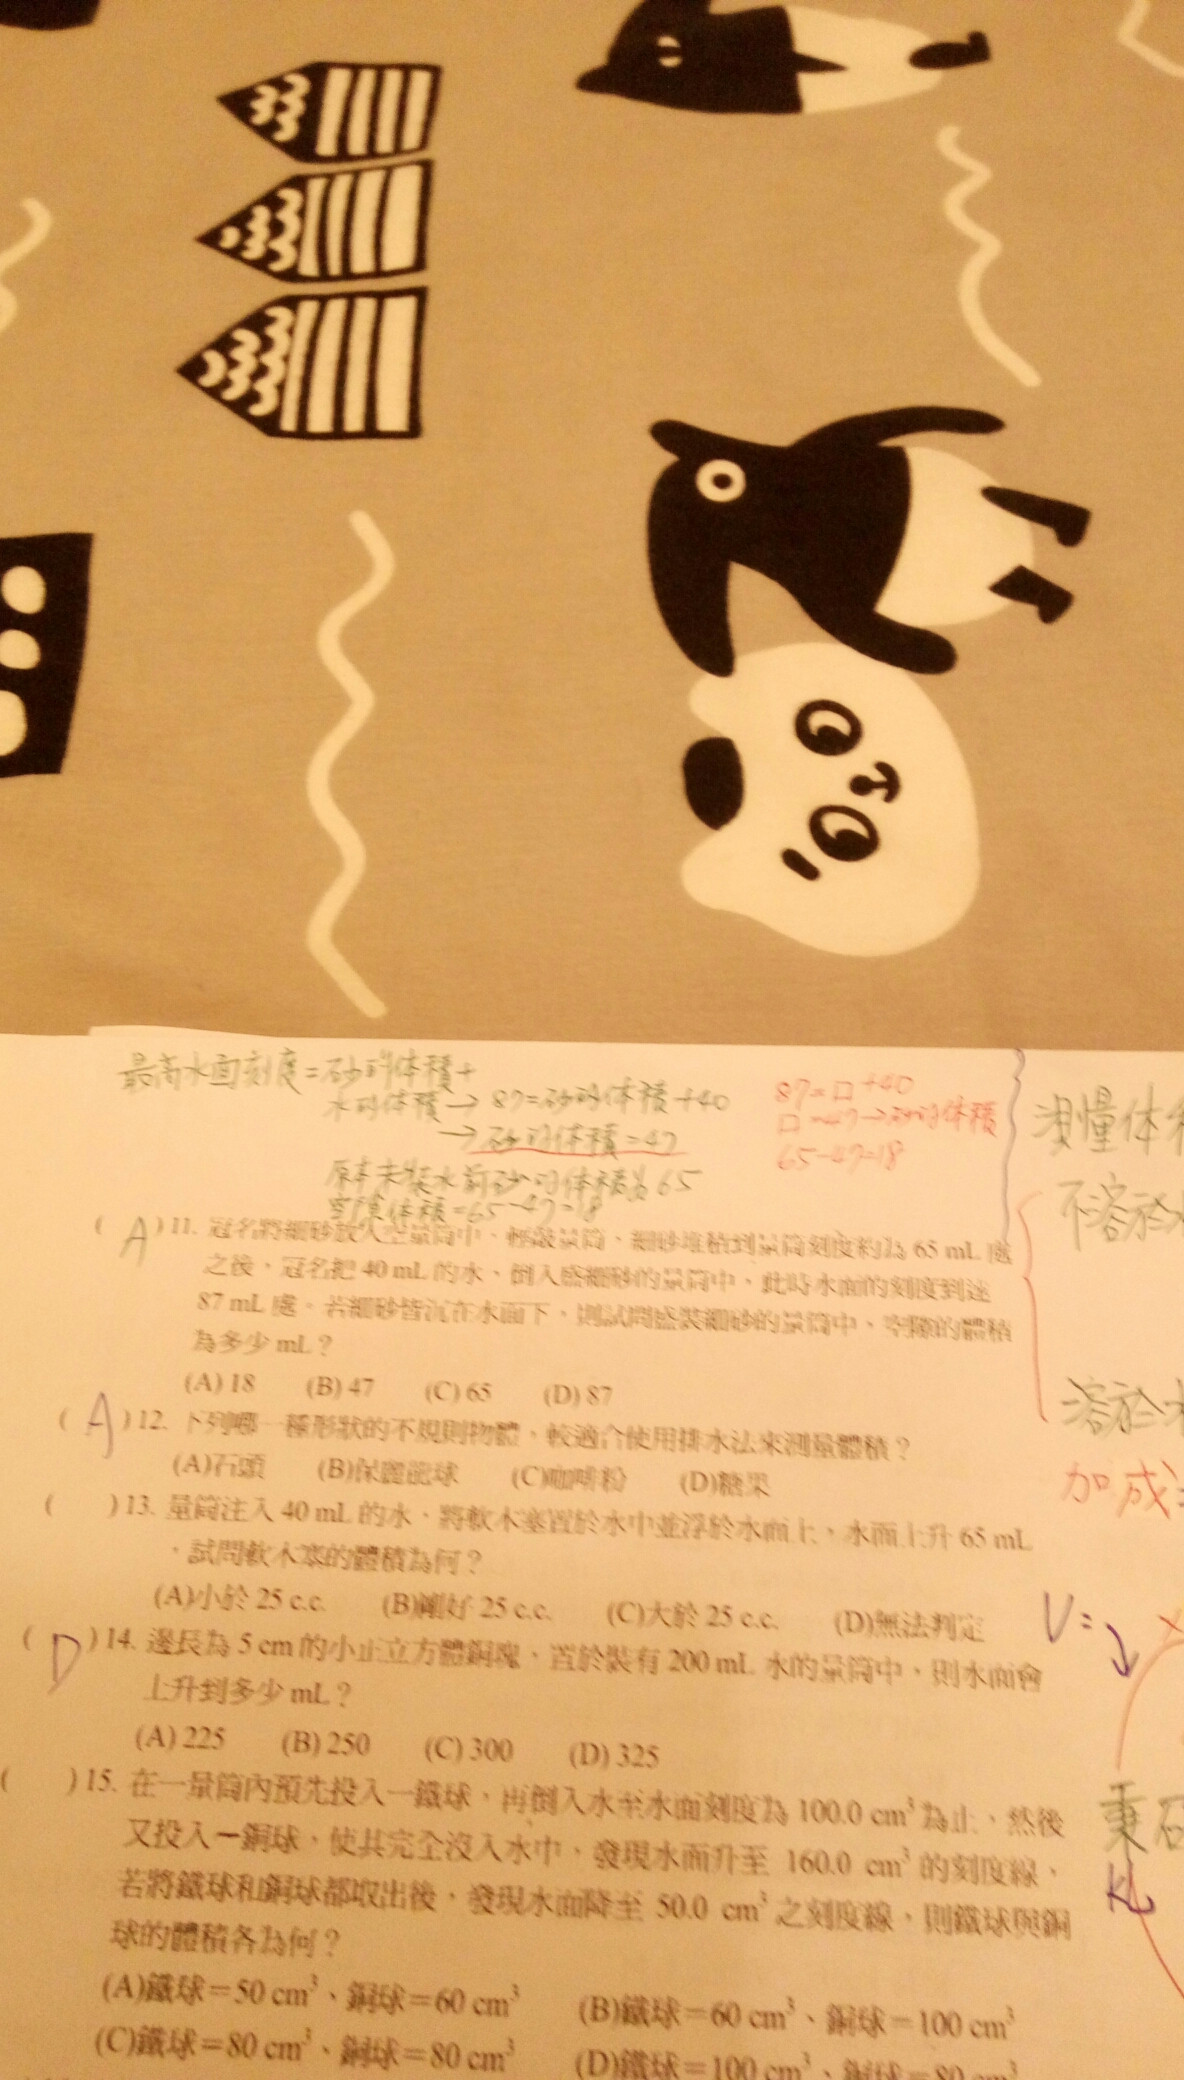 最高水面刻度=砂的体積+
水的体積→ 87=砂的体積+40
→砂的体積=47
原本未裝水前砂的体積為65
空隙体積=65-47=18
87=口+40
口=47→砂的体積
65-47=18
測量体積
不溶於
溶於水
加成
V=
(A)11. 冠名將細砂放入空量筒中,輕敲量筒,細砂堆積到量筒刻度約為 65 mL 處
之後,冠名把 40 mL 的水,倒入盛細砂的量筒中,此時水面的刻度到達
87 mL 處。若細砂皆沉在水面下,則試問盛裝細砂的量筒中,空隙的體積
為多少 mL?
(A) 18 (B) 47 (C) 65 (D) 87
(A)12. 下列哪一種形狀的不規則物體,較適合使用排水法來測量體積?
(A)石頭 (B)保麗龍球 (C)咖啡粉 (D)糖果
( )13. 量筒注入 40 mL 的水,將軟木塞置於水中並浮於水面上,水面上升 65 mL
,試問軟木塞的體積為何?
(A)小於 25 c.c. (B)剛好 25 c.c. (C)大於 25 c.c. (D)無法判定
(D)14. 邊長為 5 cm 的小正立方體銅塊,置於裝有 200 mL 水的量筒中,則水面會
上升到多少 mL?
(A) 225 (B) 250 (C) 300 (D) 325
( )15. 在一量筒內預先投入一鐵球,再倒入水至水面刻度為 100.0 cm³為止,然後
又投入一銅球,使其完全沒入水中,發現水面升至 160.0 cm³ 的刻度線,
若將鐵球和銅球都取出後,發現水面降至 50.0 cm³ 之刻度線,則鐵球與銅
球的體積各為何?
(A)鐵球=50 cm³、銅球=60 cm³ (B)鐵球=60 cm³、銅球=100 cm³
(C)鐵球=80 cm³、銅球=80 cm³ (D)鐵球=100 cm³、銅球=80 cm³